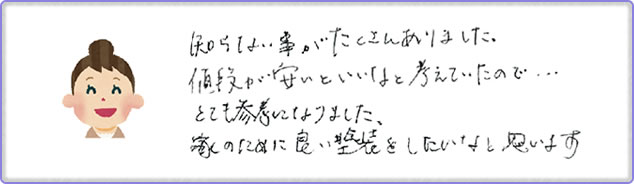 知らない事がたくさんありました。
値段が安いといいなと考えていたので・・・
とても参考になりました。
家のために良い塗装をしたいなと思います